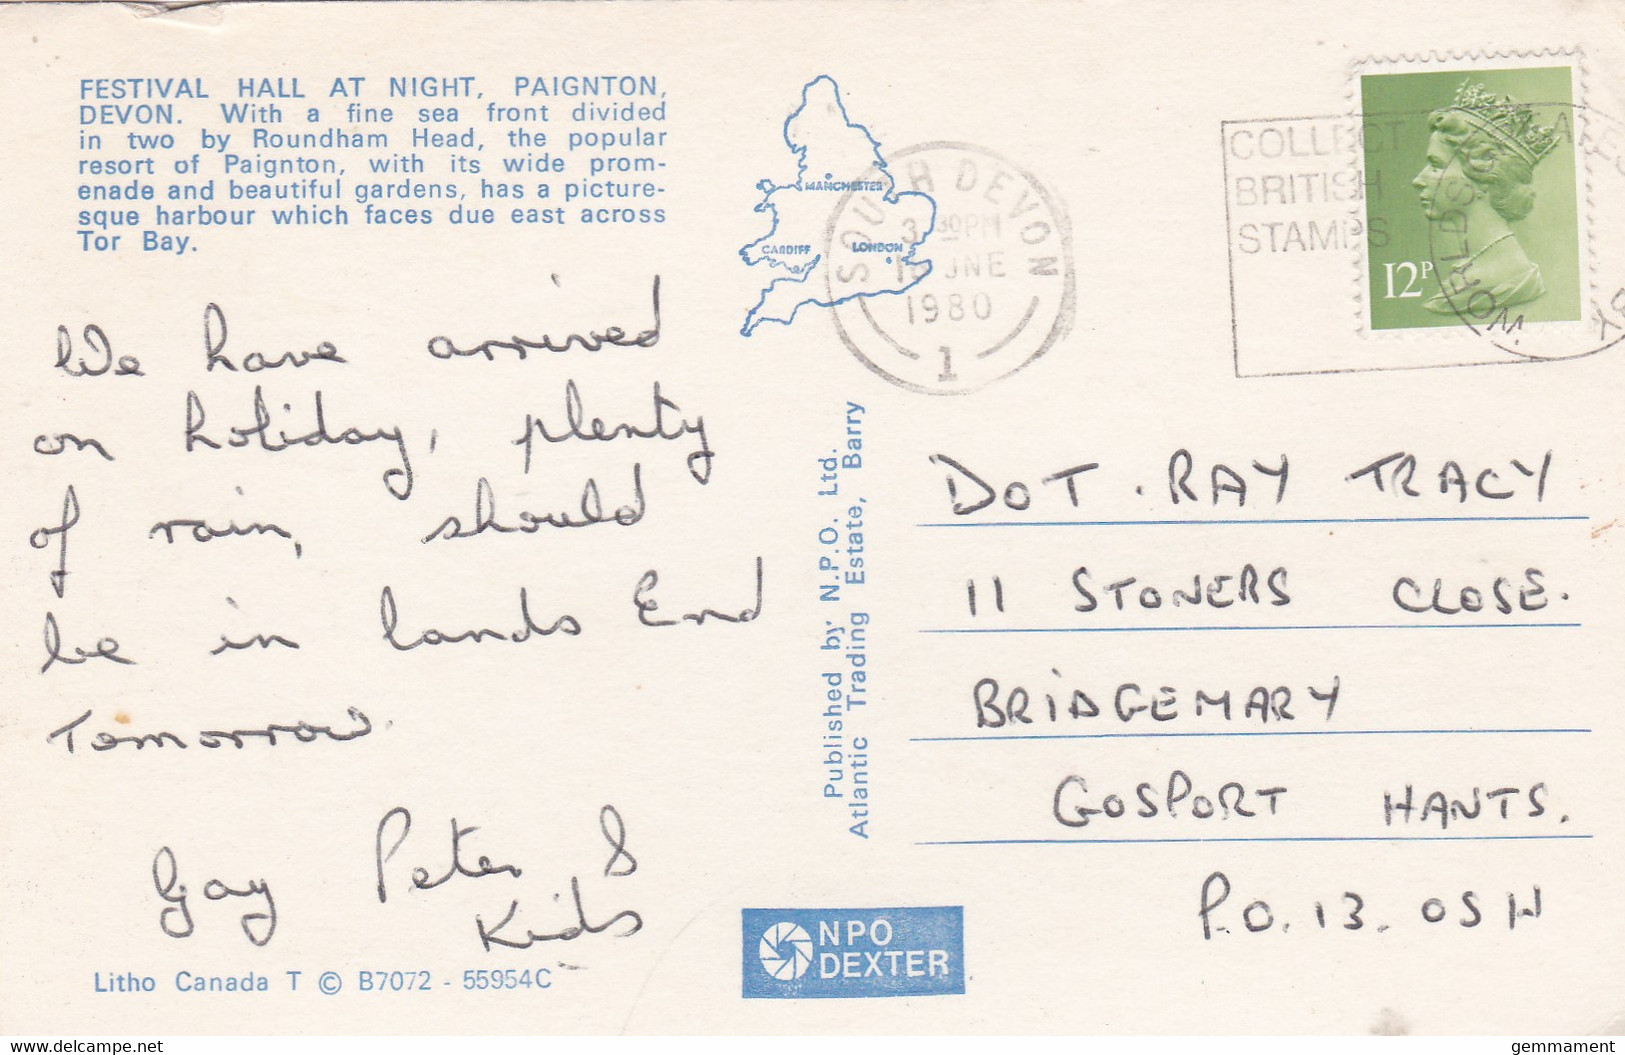 FESTIVAL HALL AT NIGHT, PAIGNTON,
DEVON. With a fine sea front divided
in two by Roundham Head, the popular
resort of Paignton, with its wide prom-
enade and beautiful gardens, has a picture-
sque harbour which faces due east across
Tor Bay.
We have arrived
on holiday, plenty
of rain, should
be in lands End
Tomorrow.
Gay Peter &
Kids
Litho Canada T © B7072 - 55954C
MANCHESTER
CARDIFF
LONDON
SOUTH DEVON
3.30PM
JNE
1980
1
Published by N.P.O. Ltd.
Atlantic Trading Estate, Barry
NPO
DEXTER
COLLECT
BRITISH
STAMPS
12P
DOT. RAY TRACY
11 STONERS CLOSE.
BRIDGEMARY
GOSPORT HANTS.
P.O. 13. OSH
www.delcampe.net
gemmament